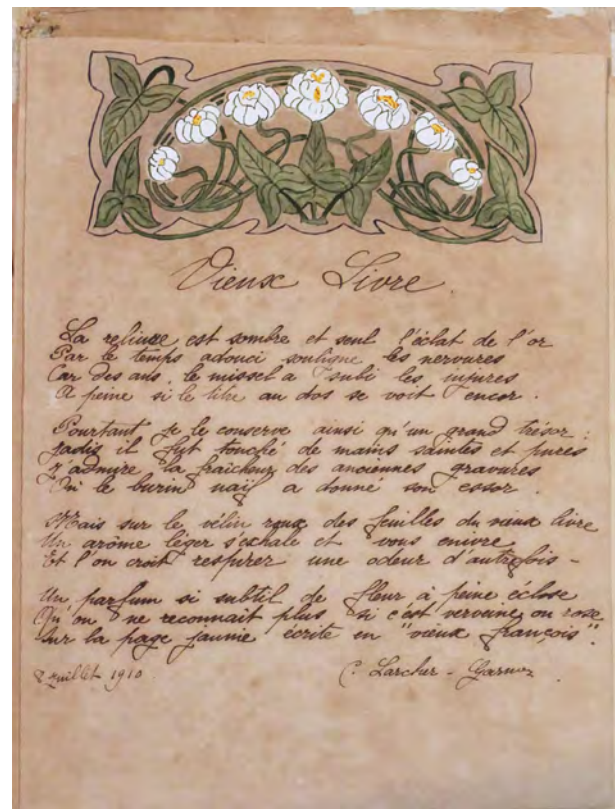 Vieux Livre.
La reliure est sombre et seul l'éclat de l'or
Par le temps adouci souligne les nervures
Car des ans, le missel a subi les injures
A peine si le titre au dos se voit encor.
Pourtant je le conserve ainsi qu'un grand trésor :
Jadis il fut touché de mains saintes et pures
J'admire la fraîcheur des anciennes gravures
Où le burin naïf a donné son essor.
Mais sur le vélin roux des feuilles du vieux livre
Un arôme léger s'exhale et vous enivre
Et l'on croit respirer une odeur d'autrefois -
Un parfum si subtil de fleur à peine éclose
Qu'on ne reconnait plus si c'est verveine ou rose
Sur la page jaunie écrite en "vieux françois".
Juillet 1910. C. Larcher -